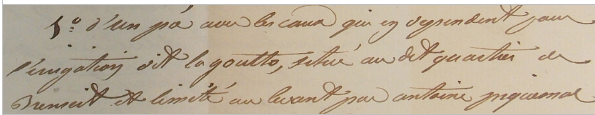 5.° d'un pré avec les eaux qui en dependent pour
l'irrigation dit la goutto, situé au dit quartier de
et limité au levant par antoine piquemal